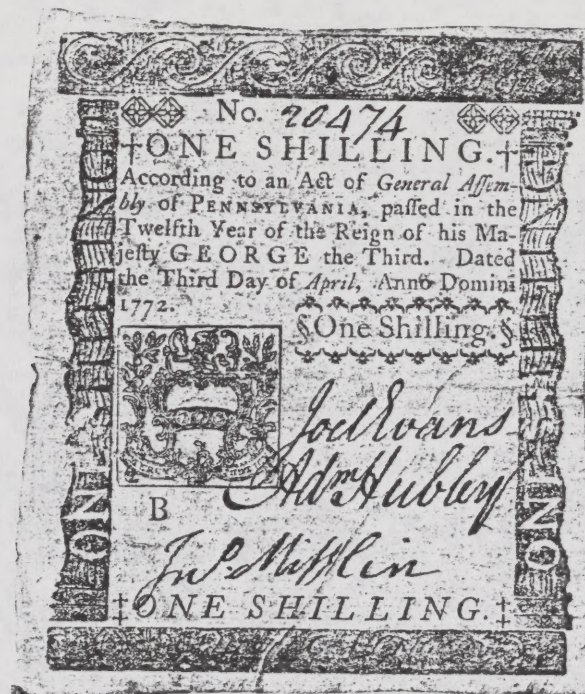 No. 20474
†ONE SHILLING.†
According to an Act of General Aſſem-
bly of PENNSYLVANIA, paſſed in the
Twelfth Year of the Reign of his Ma-
jeſty GEORGE the Third. Dated
the Third Day of April, Anno Domini
1772.
§One Shilling.§
Joel Evans
Adm Hubley
B
Jno. Mifflin
‡ONE SHILLING.‡